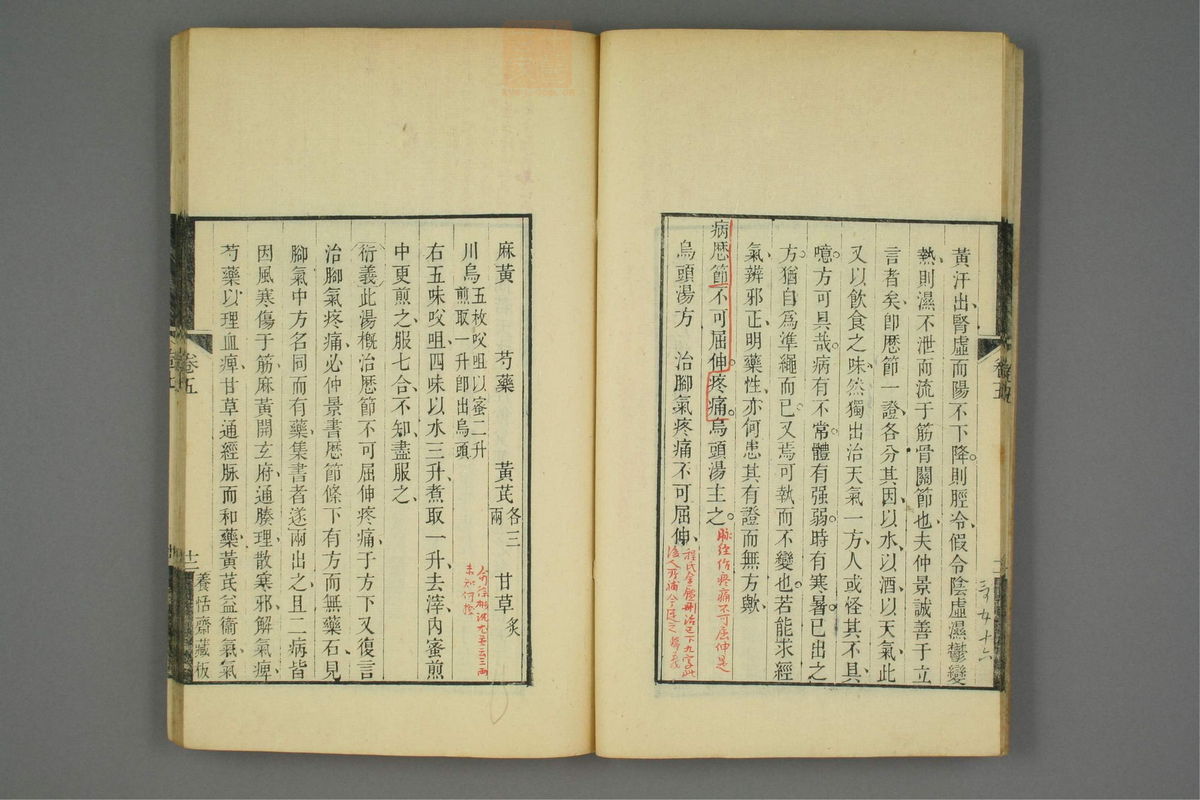 黃汗出腎虛而陽不下降則脛冷假令陰虛濕鬱變
熱則濕不泄而流于筋骨關節也夫仲景誠善于立
言者矣卽歷節一證各分其因以水以酒以天氣此
又以飲食之味然獨出治天氣一方人或怪其不具
噫方可具哉病有不常體有强弱時有寒暑已出之
方猶自爲準繩而已又焉可執而不變也若能求經
氣辨邪正明藥性亦何患其有證而無方歟
病歷節不可屈伸疼痛烏頭湯主之
脉經作疼痛不可屈伸是
烏頭湯方　治腳氣疼痛不可屈伸
卷五
麻黃　芍藥　黃芪各三兩　甘草炙
川烏五枚㕮咀以蜜二升
煎取一升卽出烏頭
未知何據
右五味㕮咀四味以水三升煮取一升去滓內蜜煎
中更煎之服七合不知盡服之
衍義此湯槪治歷節不可屈伸疼痛于方下又復言
治腳氣疼痛必仲景書歷節條下有方而無藥石見
腳氣中方名同而有藥集書者遂兩出之且二病皆
因風寒傷于筋麻黃開玄府通腠理散寒邪解氣痺
芍藥以理血痺甘草通經脉而和藥黃芪益衞氣氣
卷五
十二
養恬齋藏板